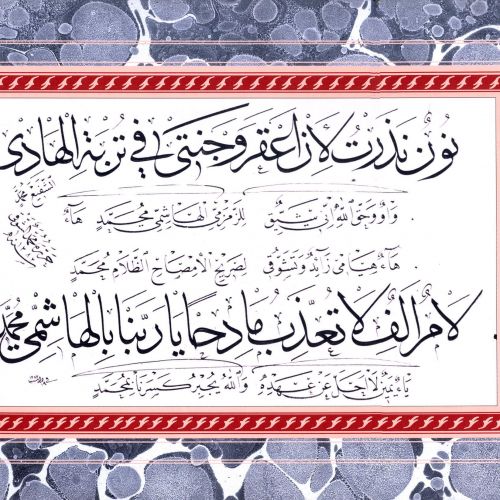 نُونٌ نَذَرْتُ لَأَنْ أُعَفِّرَ وَجْنَتِي فِي تُرْبَةِ الْهَادِي
وَاوٌ وَحَقِّ اللهِ إِنِّي شَيِّقٌ لِلزَّمْزَمِيِّ الْهَاشِمِيِّ مُحَمَّدٍ
هَاءٌ هُيَامِي زَايِدٌ وَتَشَوُّقِي لِضَرِيحِ الْمِصْبَاحِ الظَّلَامِ مُحَمَّدٍ
لَامُ أَلِفٍ لَا تُعَذِّبْ مَادِحًا يَا رَبَّنَا بِالْهَاشِمِيِّ مُحَمَّدٍ
يَاءٌ يَمِينٌ لَا أَحُلُّ عَنْ عَهْدِهِ وَاللهُ يَجْبُرُ كَسْرَنَا بِمُحَمَّدٍ